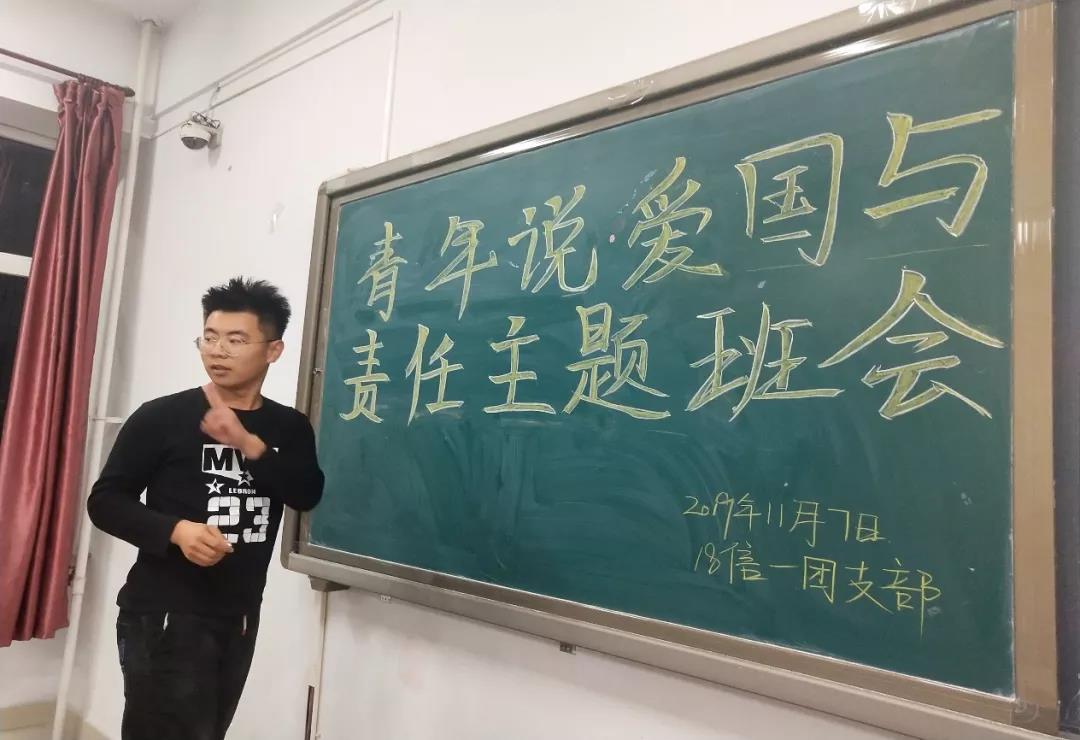 青年说爱国与
责任主题班会
2019年11月7日
18信一团支部
MV
LEBRON
23